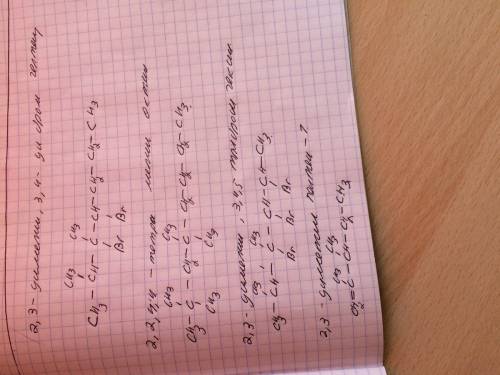 2,3-диметил, 3,4-ди бром гептан
CH3 CH3
CH3 – CH – C – CH – CH2 – CH2 – CH3
Br Br
2,2,4,4 – тетра метил октан
CH3 CH3
CH3 – C – CH2 – C – CH2 – CH2 – CH2 – CH3
CH3 CH3
2,3-диметил, 3,4,5 трибром гексан
CH3 CH3
CH3 – CH – C – CH – CH – CH3
Br Br Br
2,3-диметил пентен – ?
CH3 CH3
CH2 = C – CH – CH2 – CH3